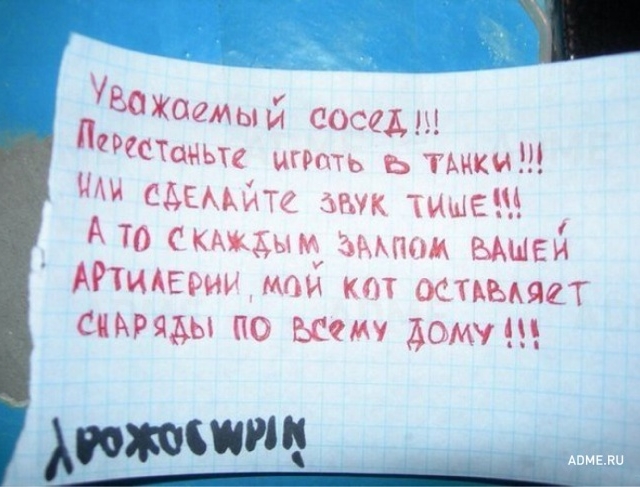 Уважаемый сосед!!!
Перестаньте играть в танки!!!
или сделайте звук тише!!!
А то скаждым залпом вашей
артилерии, мой кот оставляет
снаряды по всему дому!!!
ADME.RU